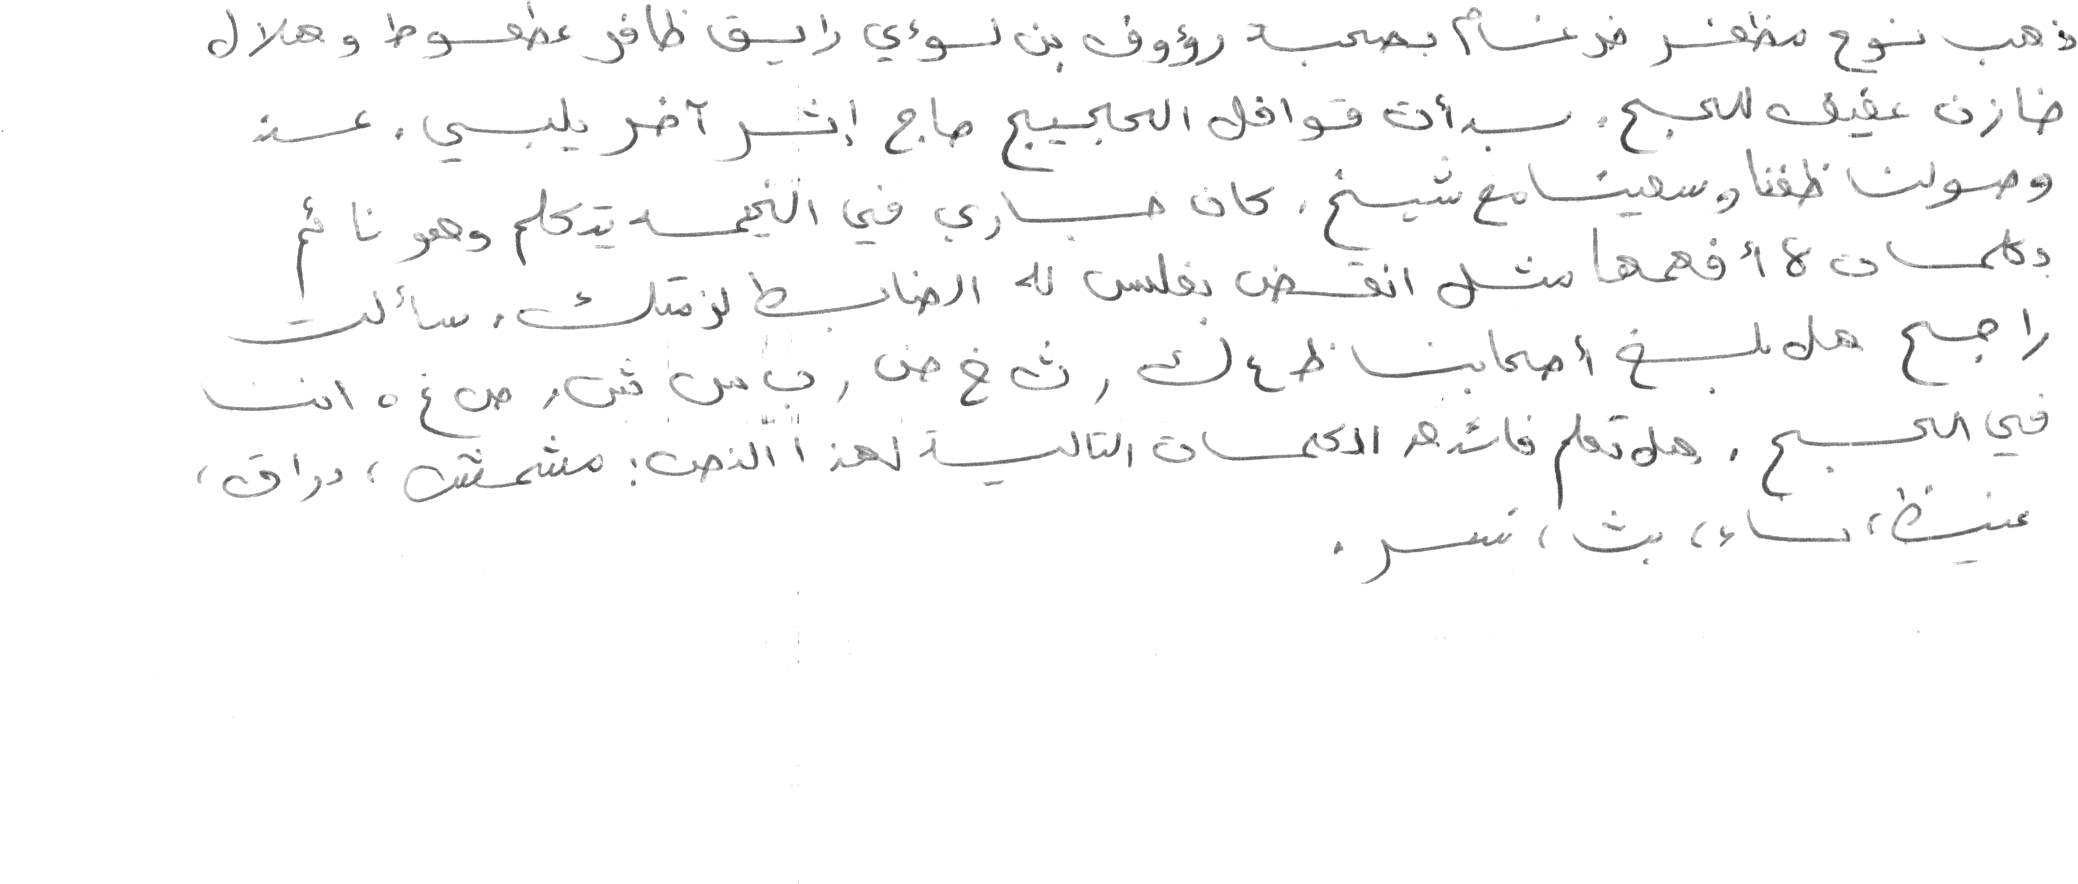 ذهب نوح مظفر ضرغام بصحبة رؤوف بن لؤي رايق ظافر عطعوط و هلال
خازن عفيف للحج. بدأت قوافل الحجيج حاج إثر آخر يلبي. عند
وصولنا طفنا وسعينا مع شيخ. كان جاري في الخيمه يتكلم وهو نائم
بكلمات لا أفهمها مثل انقض بغلس لك الضابط لزمتك. سألت
راجح هل بلغ أصحابنا ظ ع ك, ث خ ض, ب س ش, ص غ ه اننا
في الحج. هل تعلم فائده الكلمات التالية لهذا النص: مشمش، دراق،
غيظ، ناء، بث، نسر.